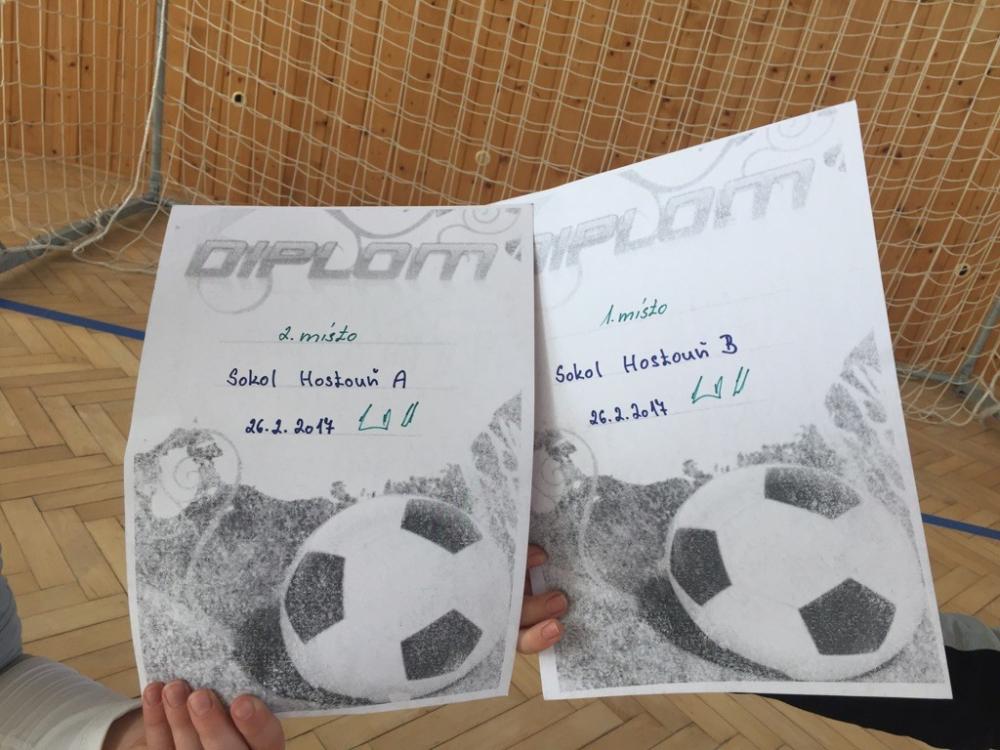 DIPLOM
2. místo
Sokol Hostouň A
26.2.2017
DIPLOM
1. místo
Sokol Hostouň B
26.2.2017